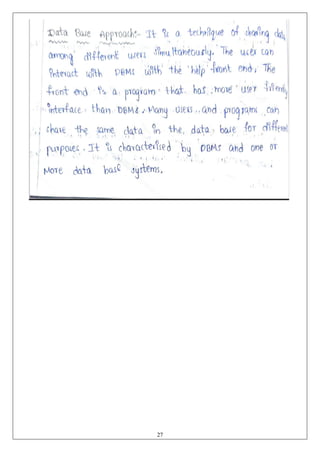 Data Base Approach:- It is a technique of sharing data
among different users simultaneously. The user can
interact with DBMS with the help front end, The
front end is a program that has more user friendly
interface than DBMS, Many users and programs can
share the same data in the data base for different
purposes. It is characterised by DBMS and one or
More data base systems.
27